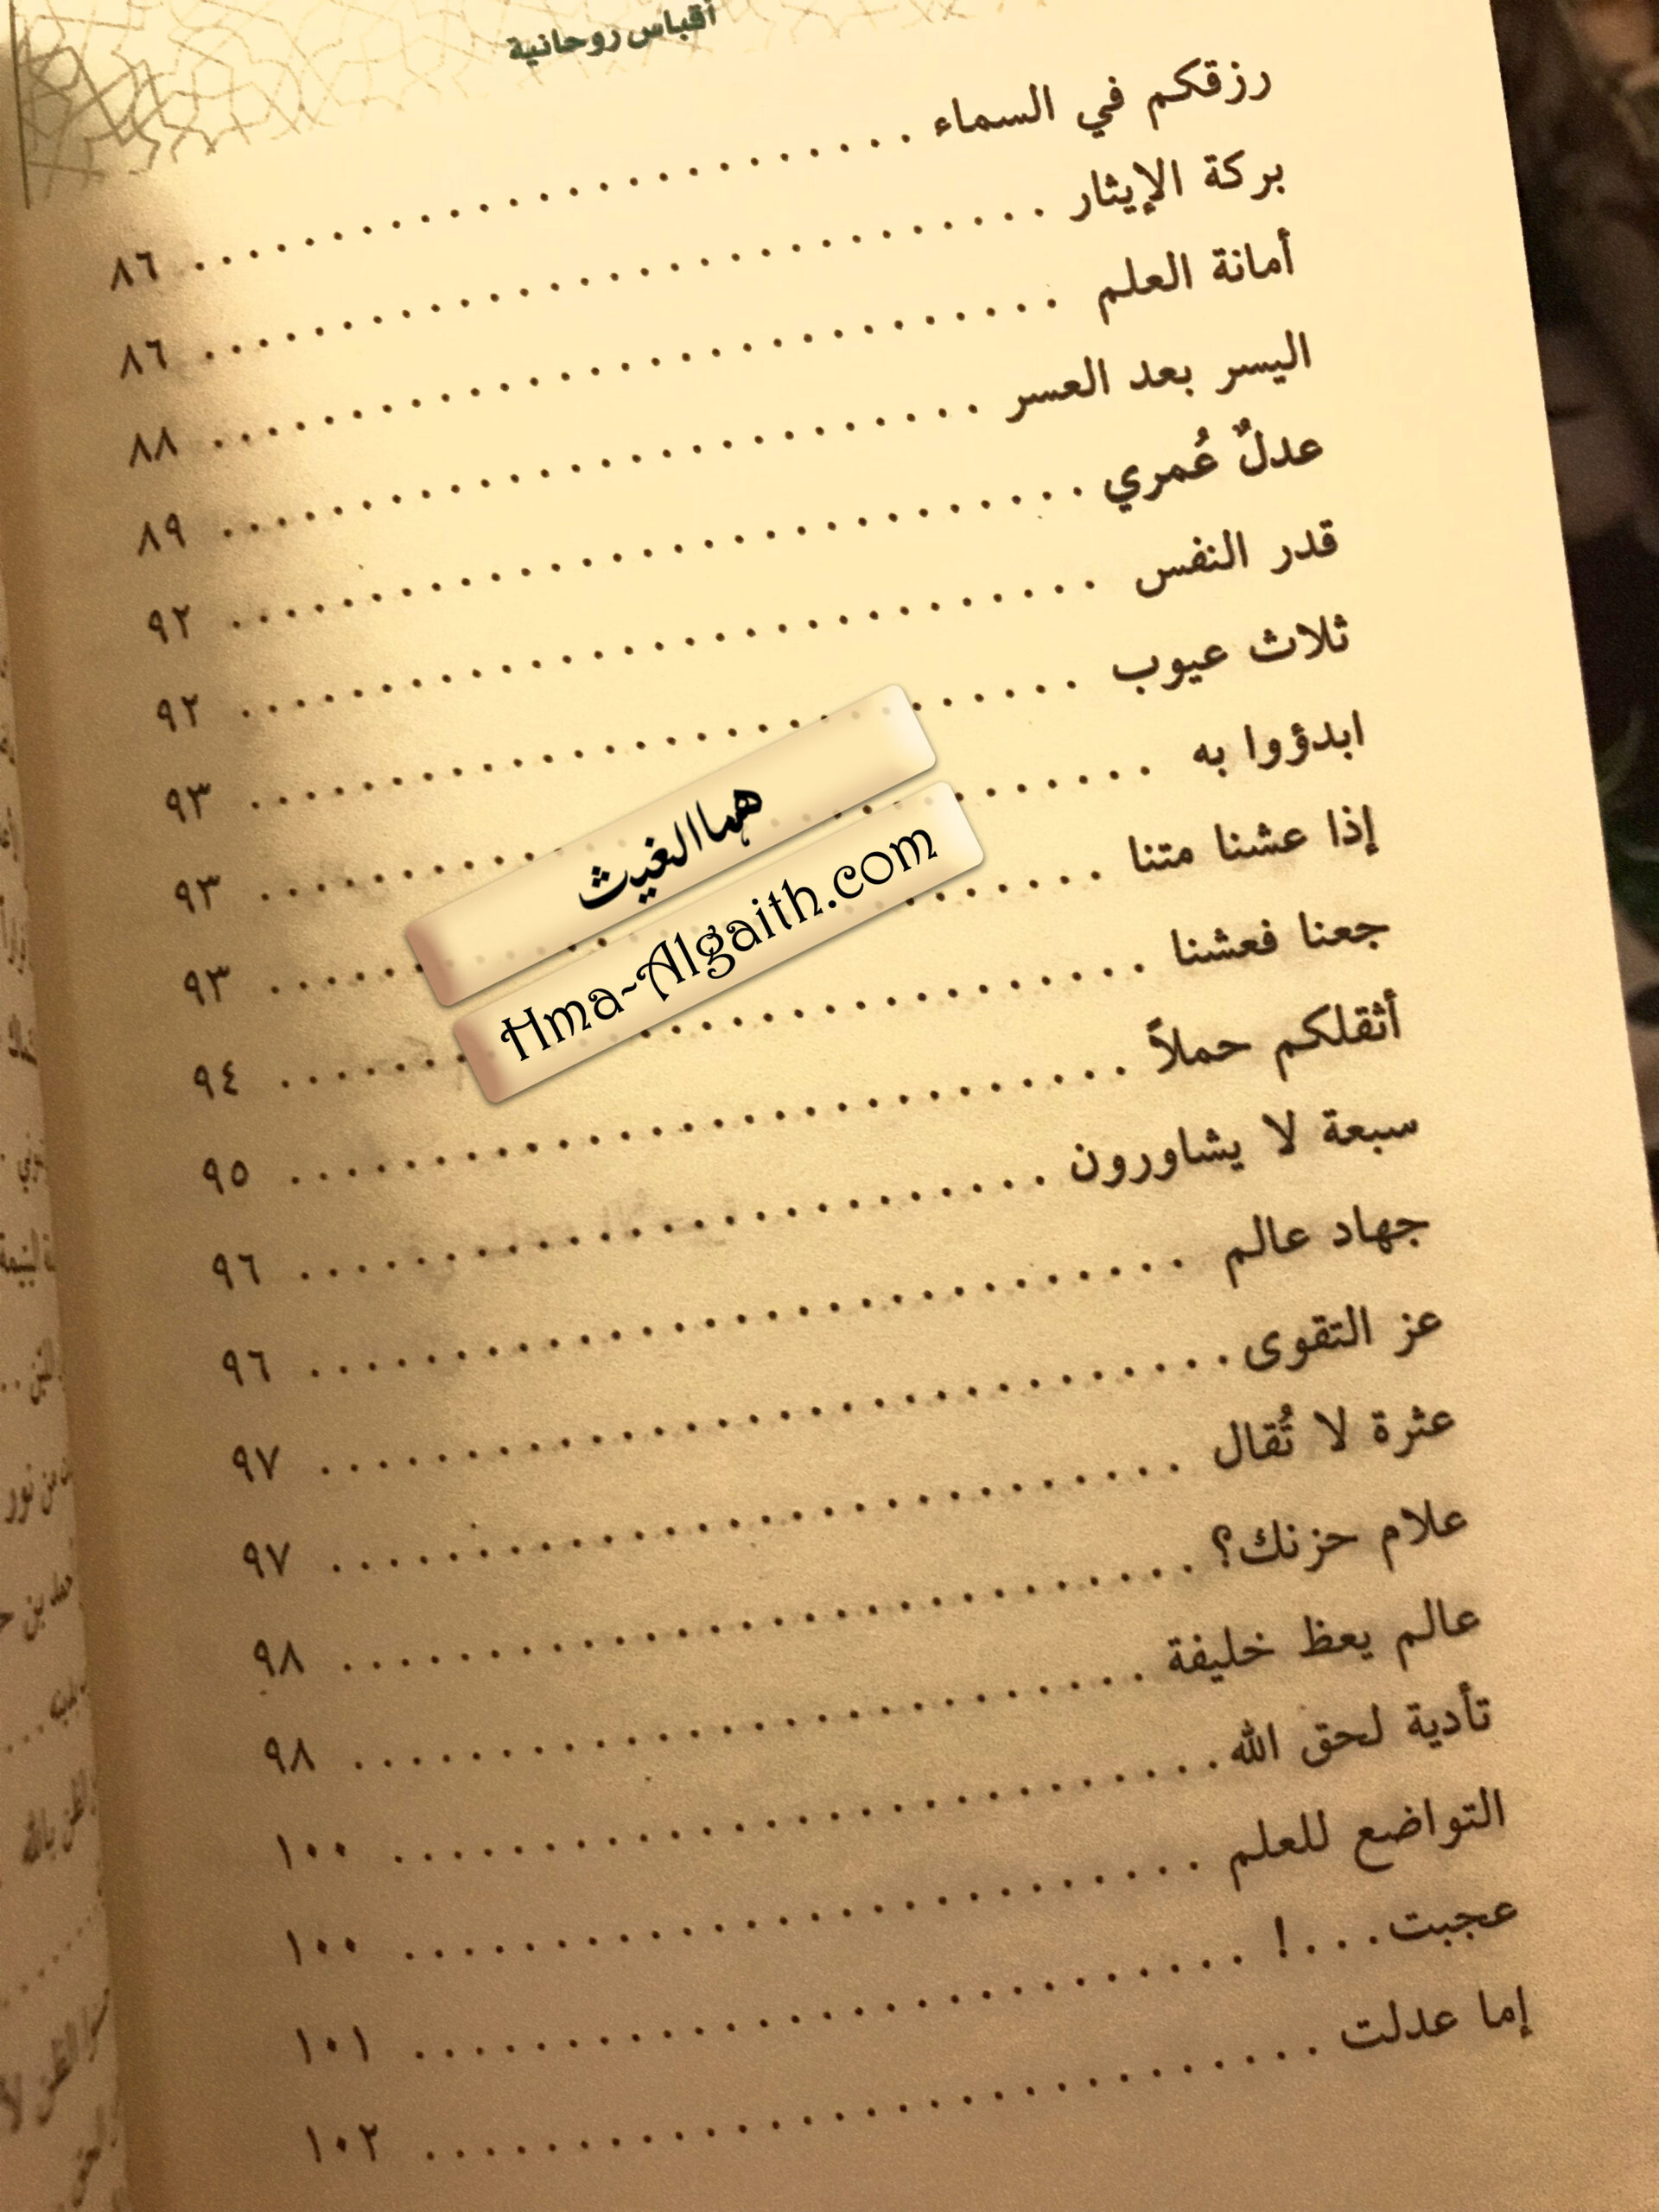 أقباس روحانية
رزقكم في السماء ........................ ٨٦
بركة الإيثار ........................ ٨٦
أمانة العلم ........................ ٨٨
اليسر بعد العسر ........................ ٨٩
عدلٌ عُمري ........................ ٩٢
قدر النفس ........................ ٩٢
ثلاث عيوب ........................ ٩٣
ابدؤوا به ........................ ٩٣
إذا عشنا متنا ........................ ٩٣
جعنا فعشنا ........................ ٩٤
أثقلكم حملاً ........................ ٩٥
سبعة لا يشاورون ........................ ٩٦
جهاد عالم ........................ ٩٦
عز التقوى ........................ ٩٧
عثرة لا تُقال ........................ ٩٧
علام حزنك؟ ........................ ٩٨
عالم يعظ خليفة ........................ ٩٨
تأدية لحق الله ........................ ١٠٠
التواضع للعلم ........................ ١٠٠
عجبت...! ........................ ١٠١
إما عدلت ........................ ١٠٢
هماالغيث
Hma-Algaith.com